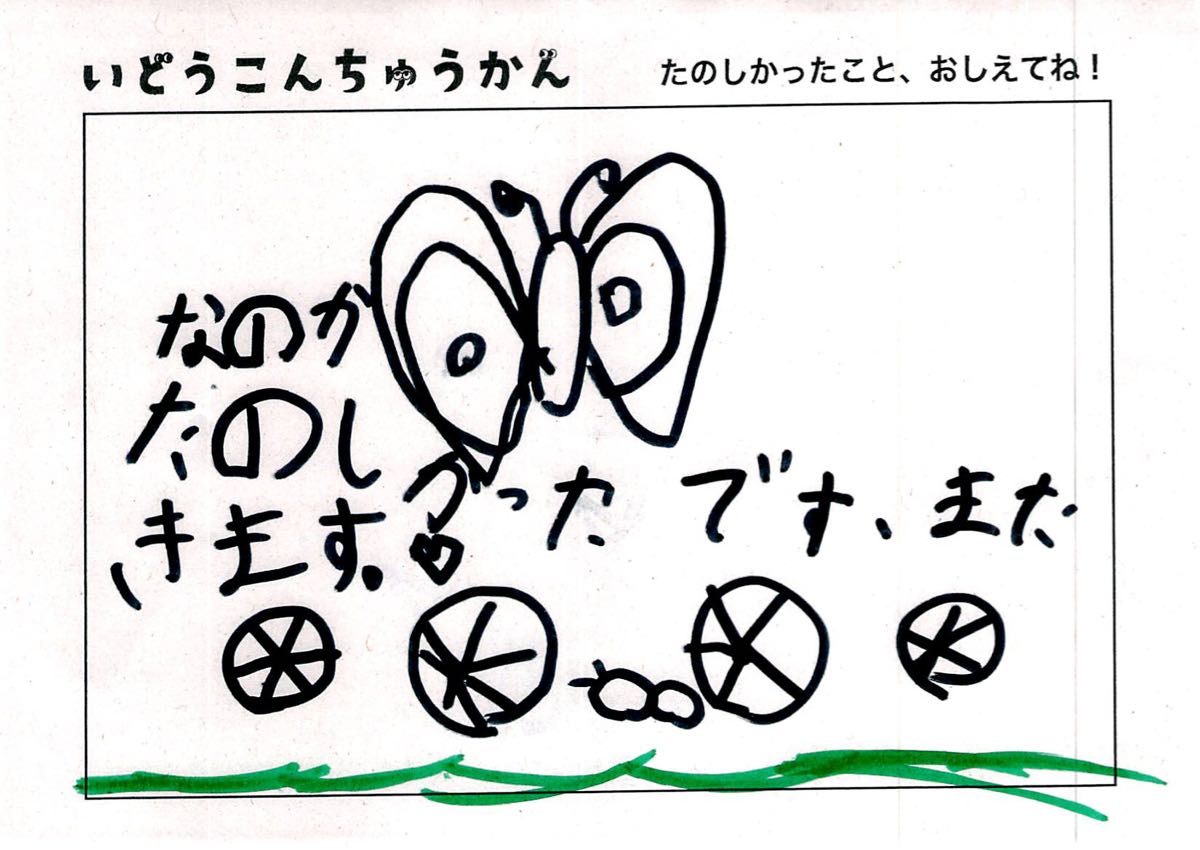 いどうこんちゅうかん
たのしかったこと、おしえてね！
なのか
たのし
った です、また
きます。